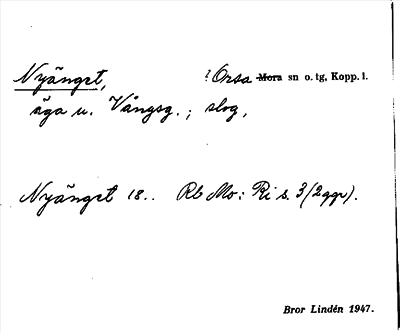 Nyänget, ! Orsa Mora sn o. tg, Kopp. l.
äga u. Vångsg. ; slog,
Nyänget 18.. Rb Mo: Ri s. 3 (2 ggr).
Bror Lindén 1947.